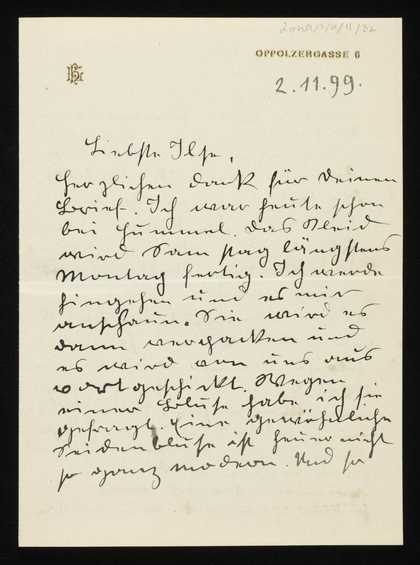 OPPOLZERGASSE 6
2.11.99.
Liebste Ilse,
herzlichen Dank für Deinen
Brief. Ich war heute schon
bei Hummel. Das Kleid
wird Samstag längstens
Montag fertig. Ich werde
hingehen und es mir
anschaun. Sie wird es
dann verpacken und
es wird von uns aus
geschickt. Wegen
einer Bluse habe ich sie
gefragt. Eine gewöhnliche
Seidenbluse ist heuer nicht
so ganz modern. Und so